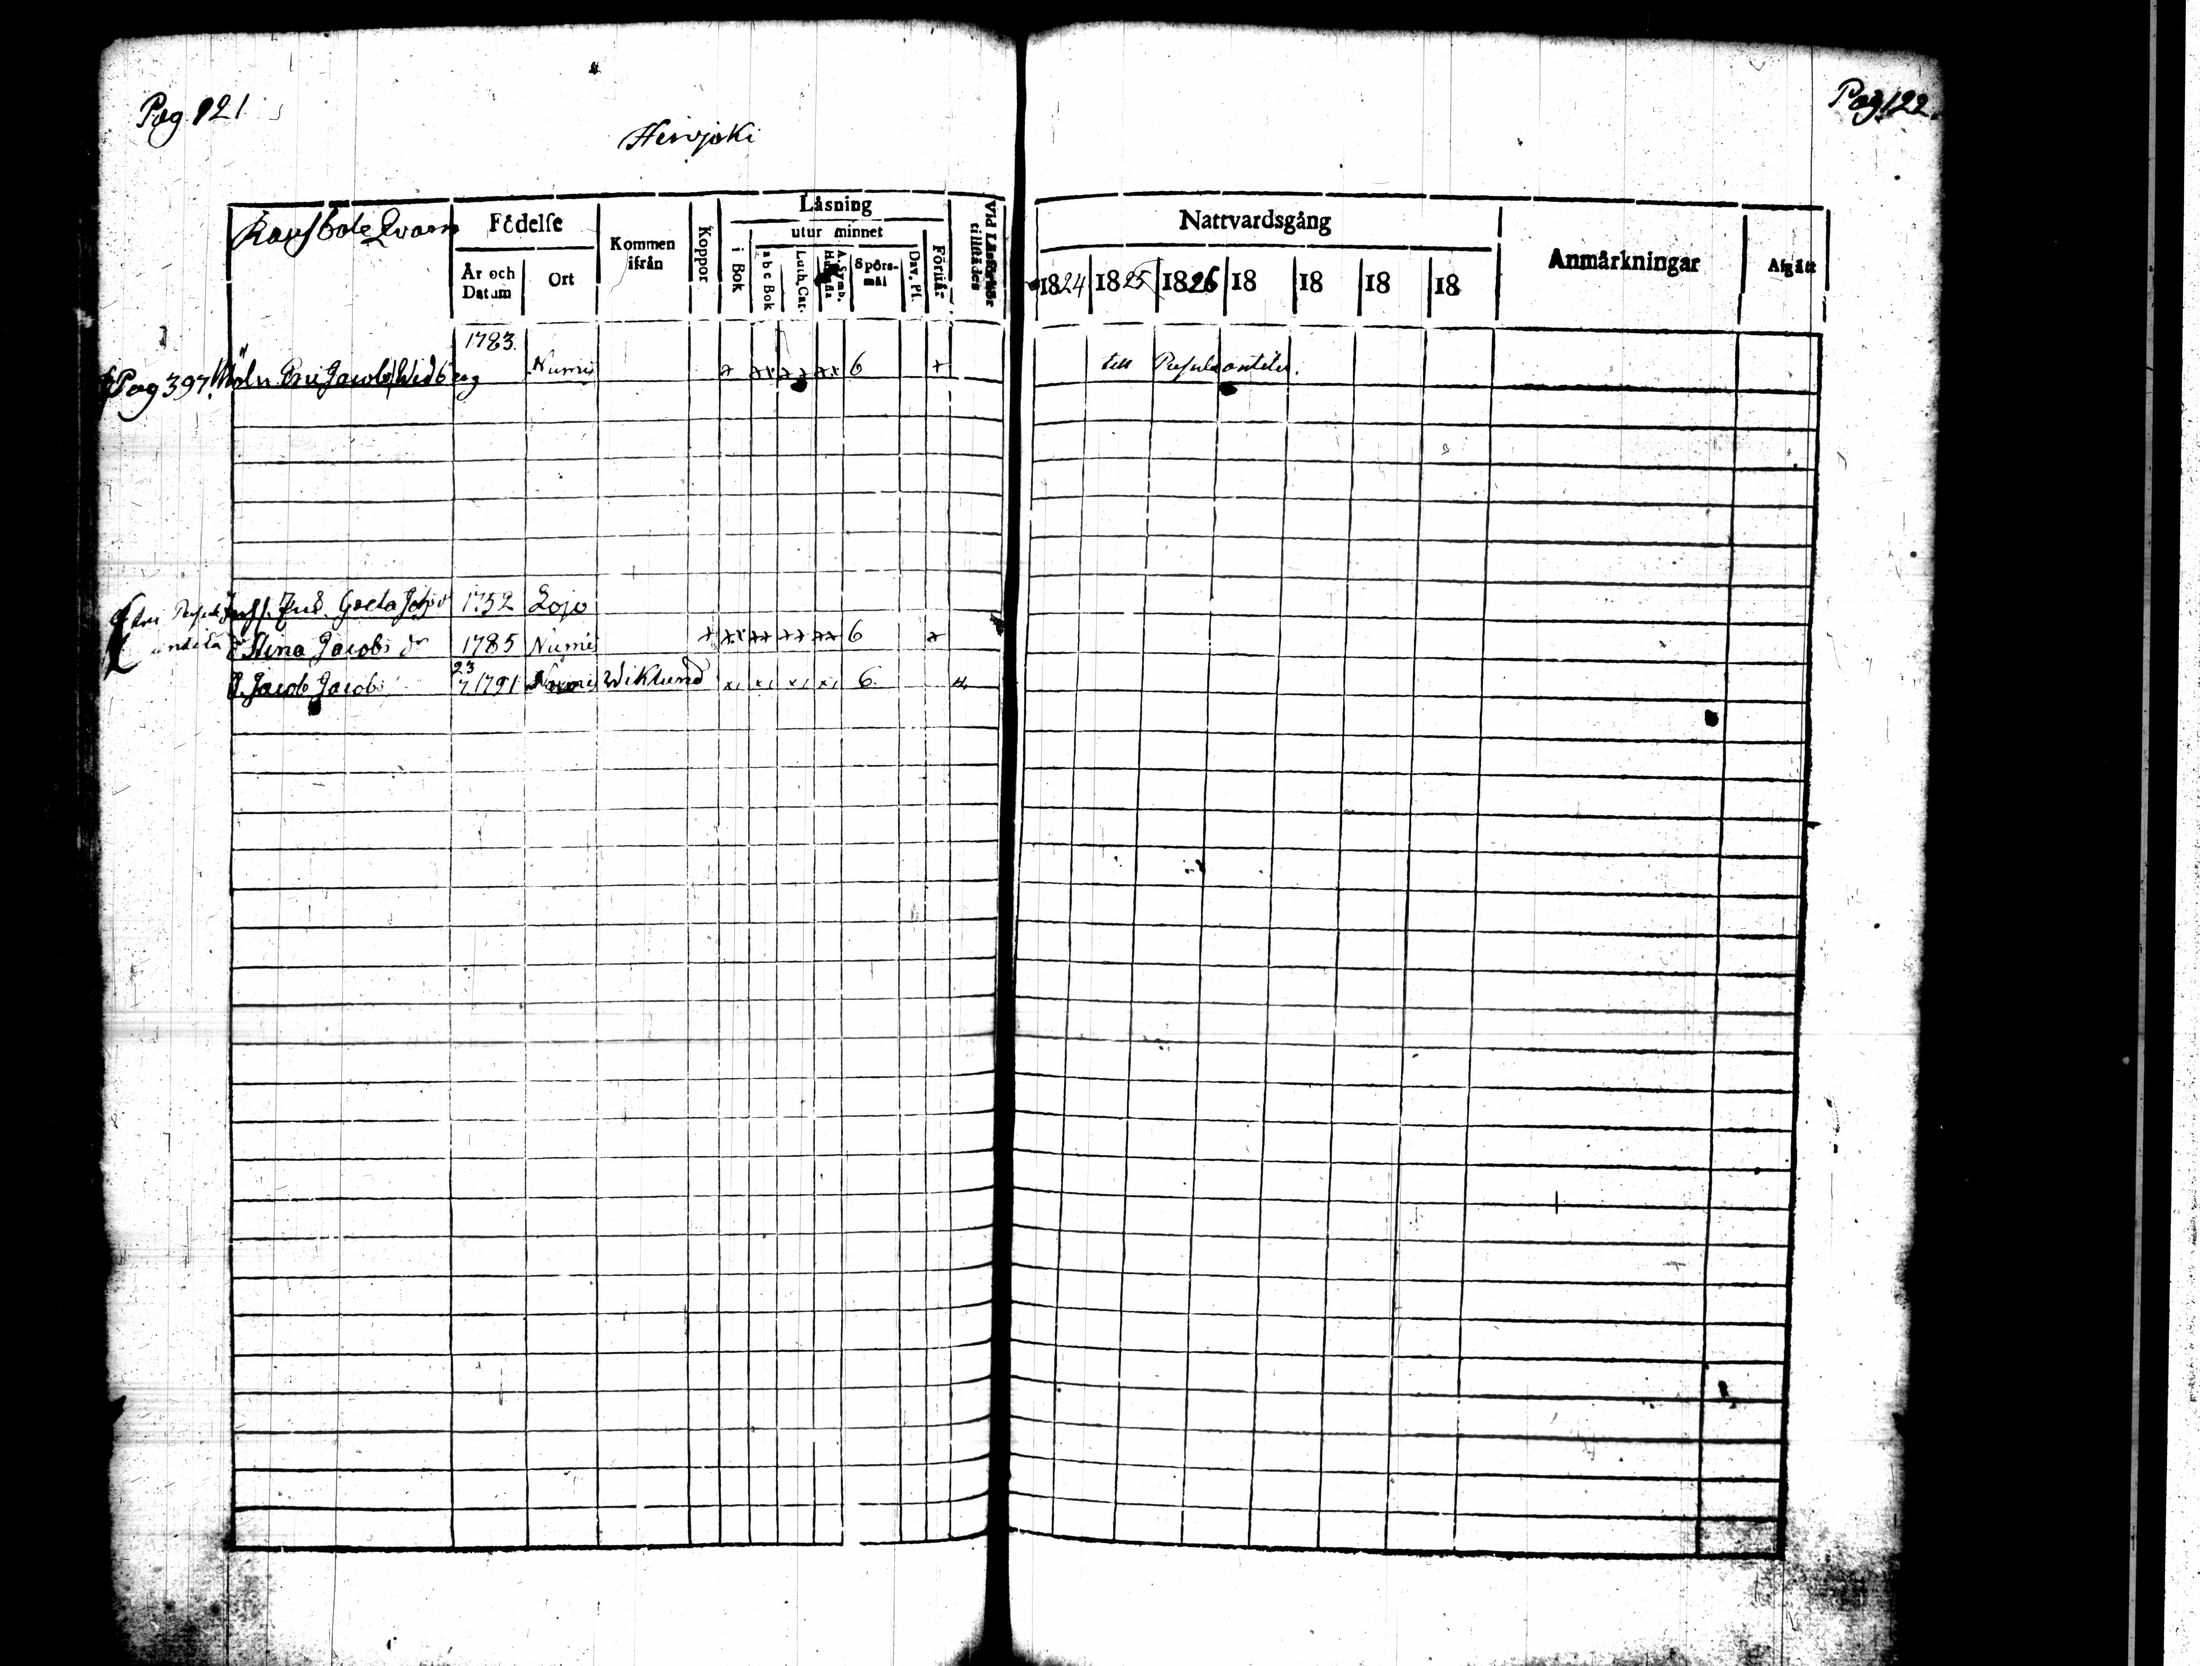 Pag. 121
Pag. 122
Hirvjoki
Qvarn
Födelse
År och Datum
Ort
Kommen ifrån
Koppor
Läsning
i Bok
utur minnet
a b c Bok
Luth. Cat.
A. Symb.
Spörsmål
Dav. Ps.
Förstår
Vid Läsförhör tillstädes
Nattvardsgång
1824 1825 1826 18 18 18 18
Anmärkningar
Afgått
1783.
Pag 397 Jacobs Widberg Numis x xx xx xx 6 x till
Enk. Greta 1752 Lojo
Stina Jacobs dr 1785 Numis x xx xx xx xx 6 x
23
D. Jacob Jacobs 7 1791 Numis Wiklund x x x x 6